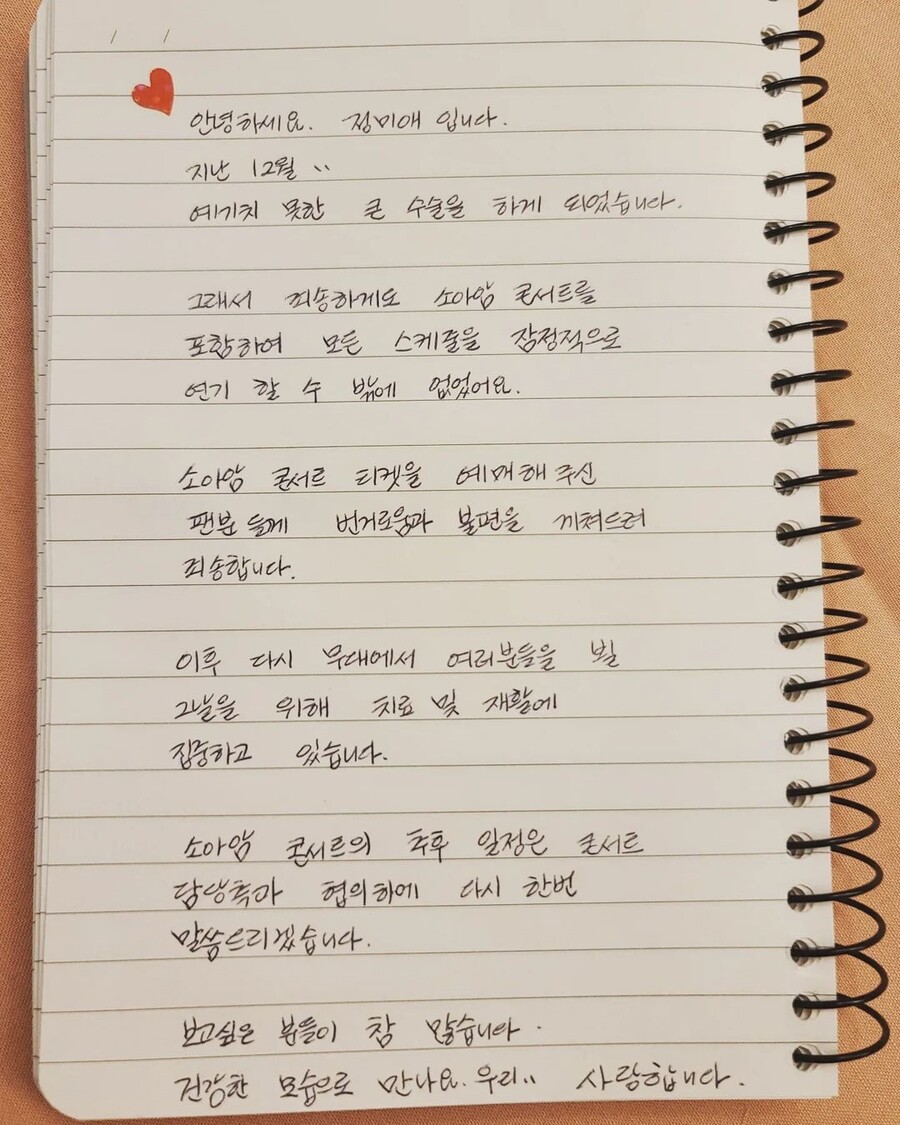 안녕하세요. 정미애 입니다.
지난 12월 ..
예기치 못한 큰 수술을 하게 되었습니다.
그래서 죄송하게도 소아암 콘서트를
포함하여 모든 스케줄을 잠정적으로
연기 할 수 밖에 없었어요.
소아암 콘서트 티켓을 예매해 주신
팬분들께 번거로움과 불편을 끼쳐드려
죄송합니다.
이후 다시 무대에서 여러분들을 뵐
그날을 위해 치료 및 재활에
집중하고 있습니다.
소아암 콘서트의 추후 일정은 콘서트
담당측과 협의하에 다시 한번
말씀드리겠습니다.
보고싶은 분들이 참 많습니다.
건강한 모습으로 만나요. 우리.. 사랑합니다.